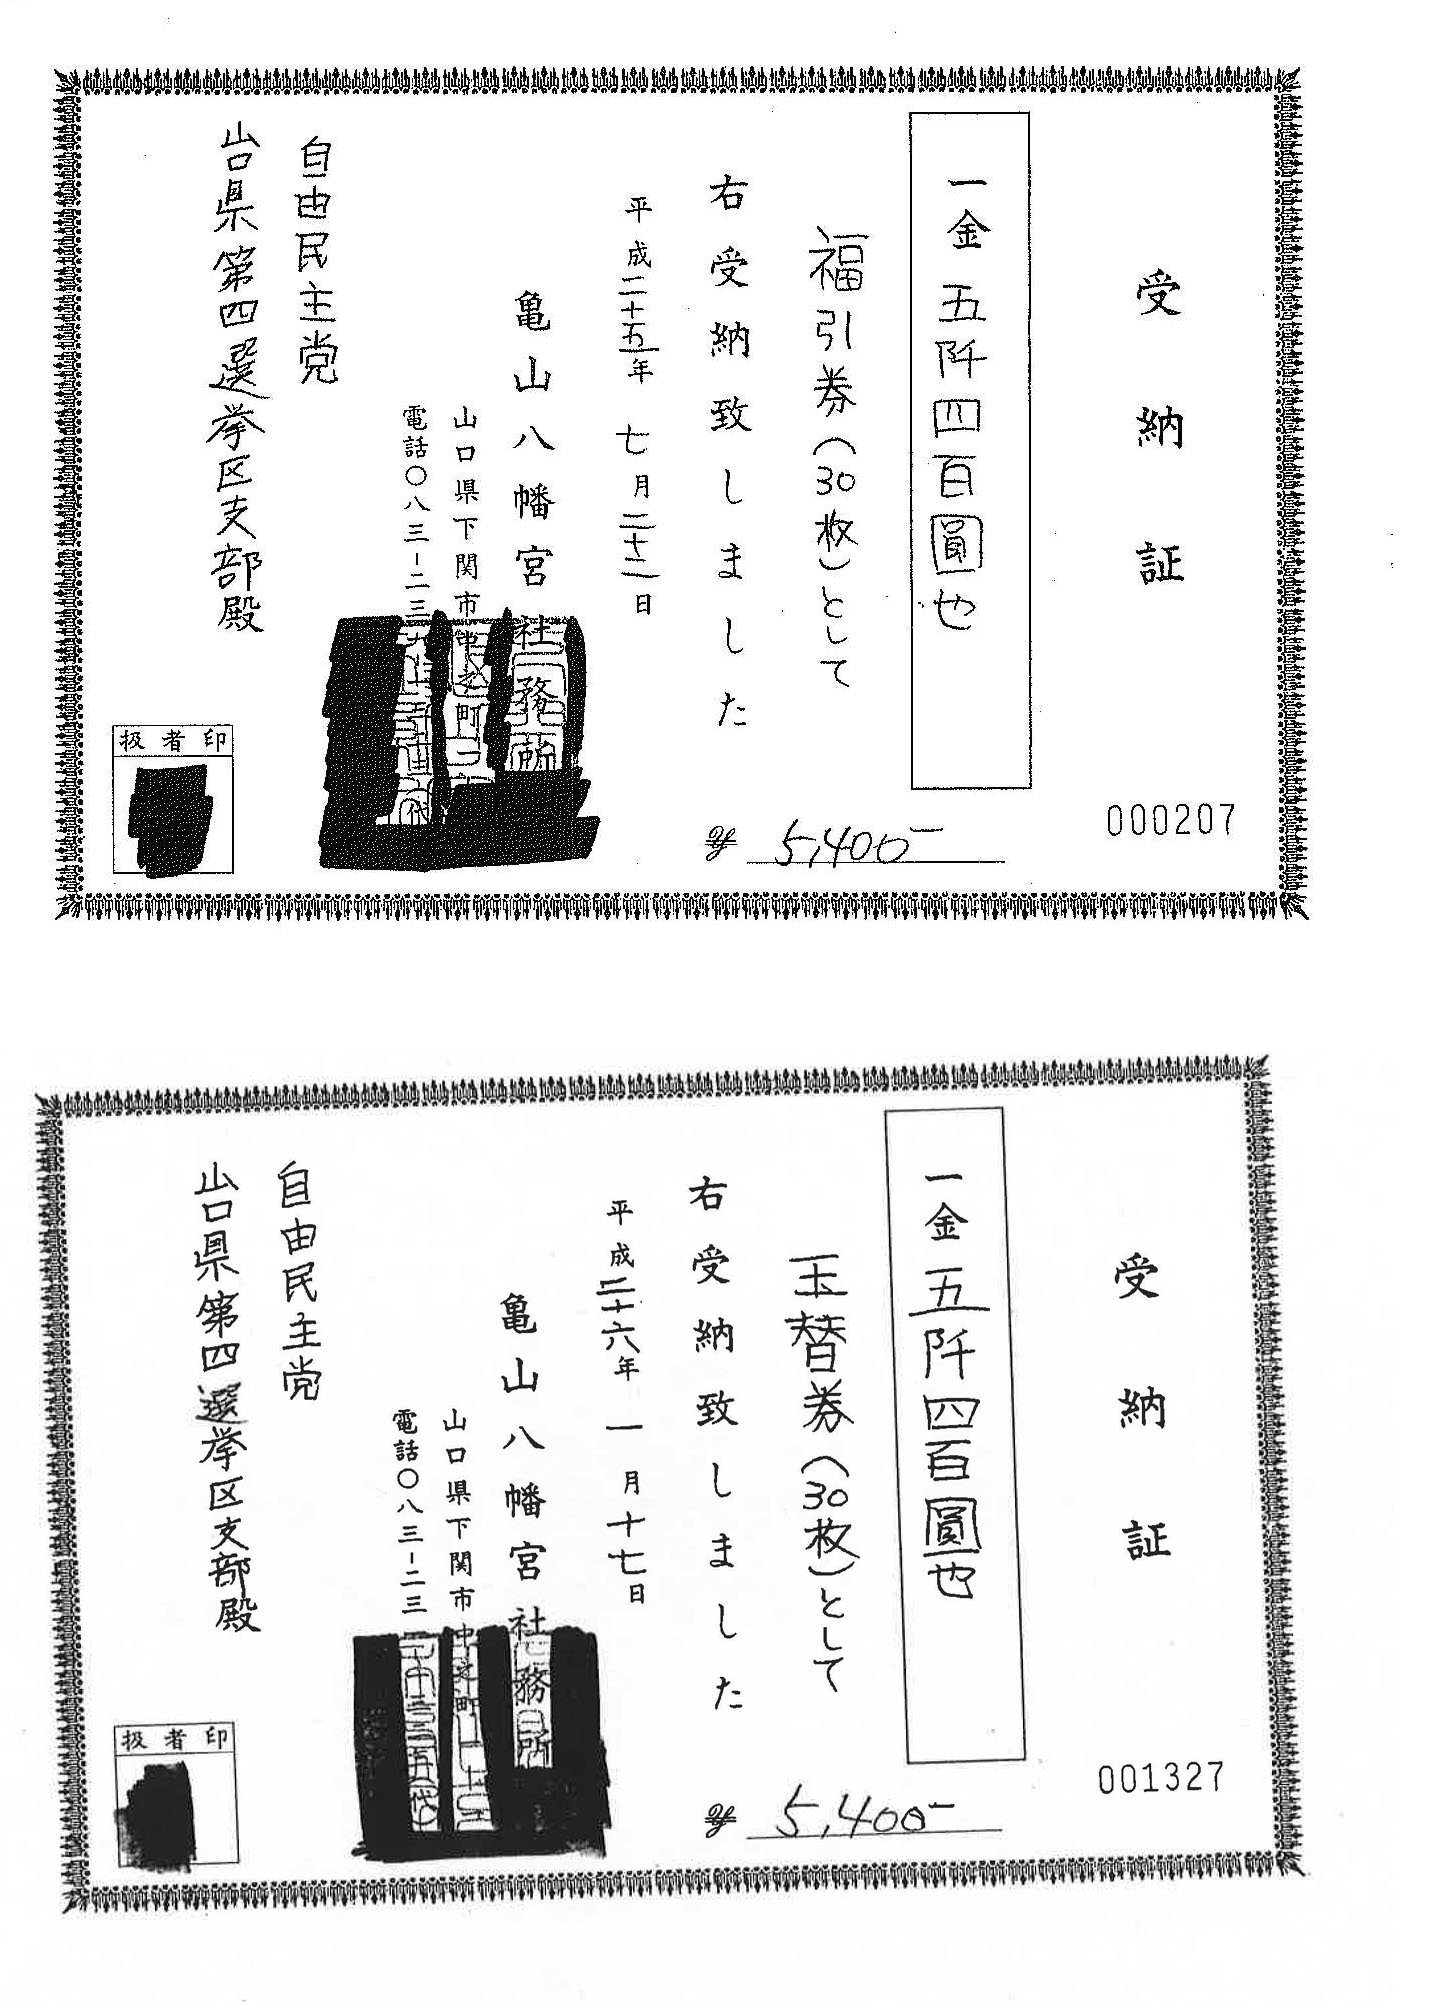 受納証
000207
一金 五阡四百圓也
福引券(30枚)として
右受納致しました
¥ 5,400-
平成二十五年 七月二十二日
亀山八幡宮社務所
山口県下関市中之町一
電話〇八三-二三
自由民主党
山口県第四選挙区支部殿
扱者印
受納証
001327
一金 五阡四百圓也
玉替券(30枚)として
右受納致しました
¥ 5,400-
平成二十六年 一月十七日
亀山八幡宮社務所
山口県下関市中之町一
電話〇八三-二三
自由民主党
山口県第四選挙区支部殿
扱者印